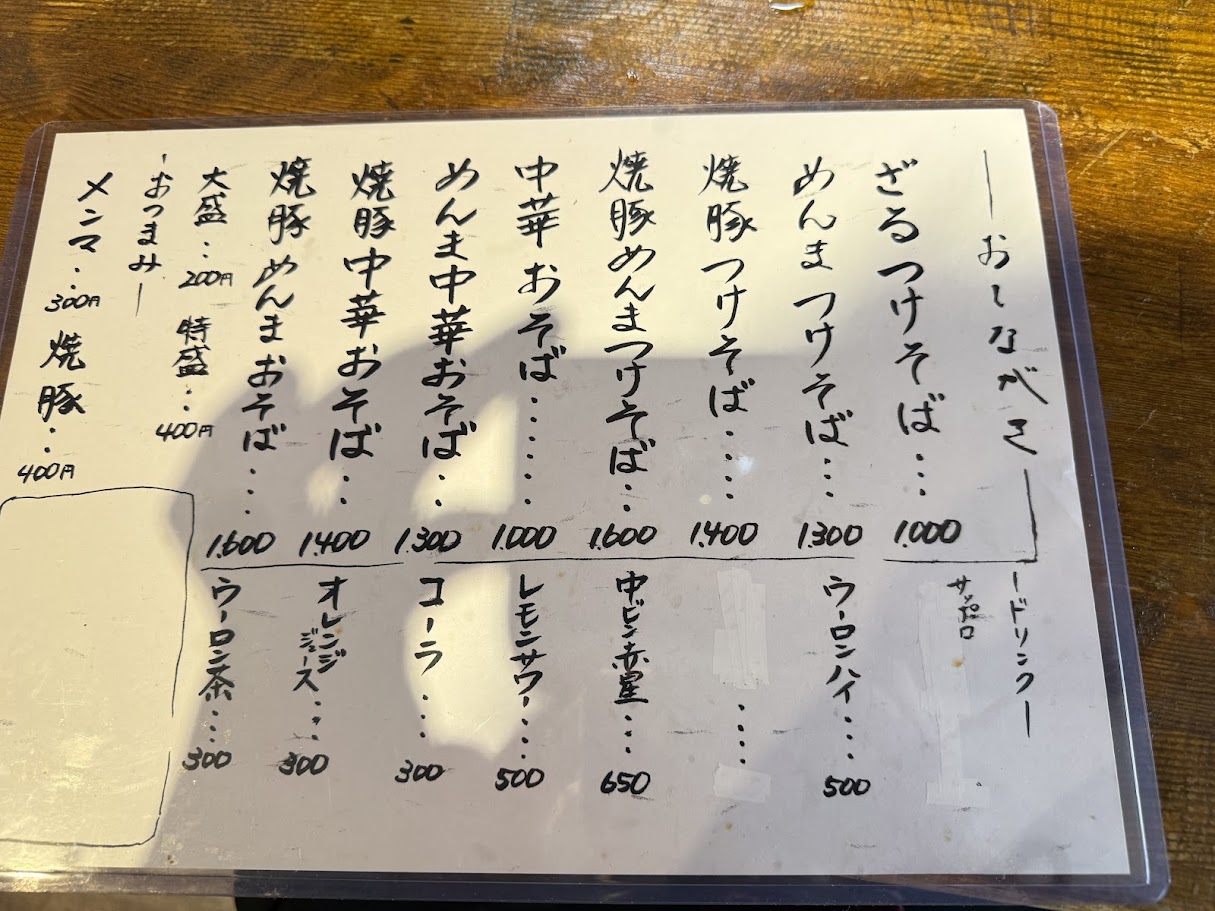 ―おしながき―
ざるつけそば… 1.000
めんまつけそば… 1.300
焼豚つけそば…. 1.400
焼豚めんまつけそば… 1.600
中華おそば...... 1.000
めんま中華おそば.. 1.300
焼豚中華おそば.. 1.400
焼豚めんまおそば... 1.600
大盛..200円 特盛..400円
-おつまみ-
メンマ..300円 焼豚..400円
-ドリンク-
サッポロ
ウーロンハイ... 500
....
中ビン赤星... 650
レモンサワー... 500
コーラ... 300
オレンジジュース... 300
ウーロン茶... 300